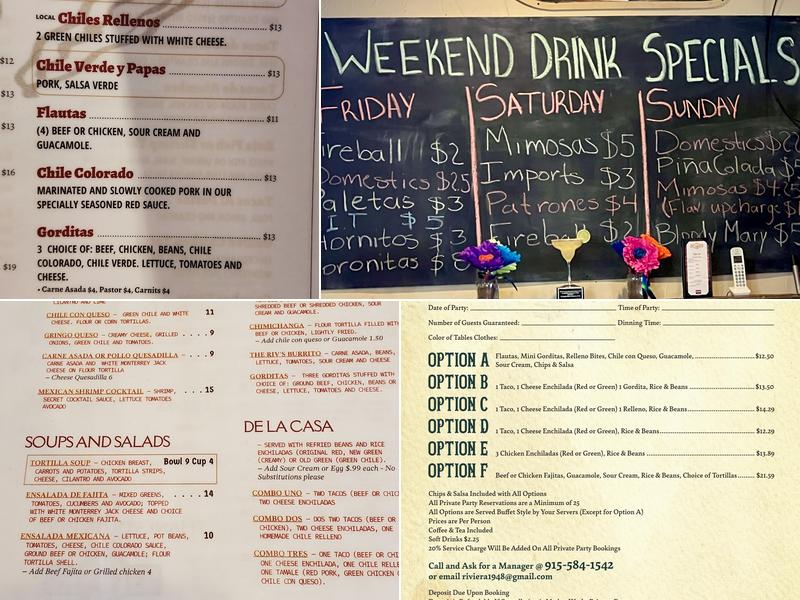 LOCAL Chiles Rellenos $13
2 GREEN CHILES STUFFED WITH WHITE CHEESE.
$12
Chile Verde y Papas $13
PORK, SALSA VERDE
$13
Flautas $11
$13
(4) BEEF OR CHICKEN, SOUR CREAM AND
GUACAMOLE.
$16
Chile Colorado $13
MARINATED AND SLOWLY COOKED PORK IN OUR
SPECIALLY SEASONED RED SAUCE.
Gorditas $13
3 CHOICE OF: BEEF, CHICKEN, BEANS, CHILE
$19
COLORADO, CHILE VERDE. LETTUCE, TOMATOES AND
CHEESE.
• Carne Asada $4, Pastor $4, Carnits $4
WEEKEND DRINK SPECIALS
FRIDAY
ireball $2
Domestics $2.5
aletas $3
I.T $5
Hornitos $3
oronitas $
SATURDAY
Mimosas $5
Imports $3
Patrones $4
Fireball
SUNDAY
Domestics
Piña Colada $5
Mimosas
(Flav upcharge $1
Bloody Mary $5
CHILE CON QUESO – GREEN CHILE AND WHITE 11
CHEESE. FLOUR OR CORN TORTILLAS.
GRINGO QUESO – CREAMY CHEESE, GRILLED . . . . . 9
ONIONS, GREEN CHILE AND TOMATOES.
CARNE ASADA OR POLLO QUESADILLA – . . . 9
CARNE ASADA AND WHITE MONTERREY JACK
CHEESE ON FLOUR TORTILLA
– Cheese Quesadilla 6
MEXICAN SHRIMP COCKTAIL – SHRIMP, . . . 15
SECRET COCKTAIL SAUCE, LETTUCE TOMATOES
AVOCADO
SOUPS AND SALADS
TORTILLA SOUP – CHICKEN BREAST, Bowl 9 Cup 4
CARROTS AND POTATOES, TORTILLA STRIPS,
CHEESE, CILANTRO AND AVOCADO
ENSALADA DE FAJITA – MIXED GREENS, . . . . . 14
TOMATOES, CUCUMBERS AND AVOCADO; TOPPED
WITH WHITE MONTERREY JACK CHEESE AND CHOICE
OF BEEF OR CHICKEN FAJITA.
ENSALADA MEXICANA – LETTUCE, POT BEANS, 10
TOMATOES, CHEESE, CHILE COLORADO SAUCE,
GROUND BEEF OR CHICKEN, GUACAMOLE; FLOUR
TORTILLA SHELL.
– Add Beef Fajita or Grilled chicken 4
SHREDDED BEEF OR SHREDDED CHICKEN, SOUR
CREAM AND GUACAMOLE.
CHIMICHANGA – FLOUR TORTILLA FILLED WITH
BEEF OR CHICKEN, LIGHTLY FRIED.
– Add chile con queso or Guacamole 1.50
THE RIV'S BURRITO – CARNE ASADA, BEANS,
LETTUCE, TOMATOES, SOUR CREAM AND CHEESE
GORDITAS – THREE GORDITAS STUFFED WITH
CHOICE OF: GROUND BEEF, CHICKEN, BEANS OR
CHEESE, LETTUCE, TOMATOES AND CHEESE.
DE LA CASA
– SERVED WITH REFRIED BEANS AND RICE
ENCHILADAS (ORIGINAL RED, NEW GREEN
(CREAMY) OR OLD GREEN (GREEN CHILE).
– Add Sour Cream or Egg $.99 each - No
Substitutions please
COMBO UNO – TWO TACOS (BEEF OR CHIC
TWO CHEESE ENCHILADAS
COMBO DOS – DOS TWO TACOS (BEEF OR
CHICKEN), TWO CHEESE ENCHILADAS, ONE
HOMEMADE CHILE RELLENO
COMBO TRES – ONE TACO (BEEF OR CHI
ONE CHEESE ENCHILADA, ONE CHILE RELLE
ONE TAMALE (RED PORK, GREEN CHICKEN O
CHILE CON QUESO).
Date of Party: Time of Party:
Number of Guests Guaranteed: Dinning Time:
Color of Tables Clothes:
OPTION A Flautas, Mini Gorditas, Relleno Bites, Chile con Queso, Guacamole, $12.50
Sour Cream, Chips & Salsa
OPTION B 1 Taco, 1 Cheese Enchilada (Red or Green) 1 Gordita, Rice & Beans $13.50
OPTION C 1 Taco, 1 Cheese Enchilada (Red or Green) 1 Relleno, Rice & Beans $14.29
OPTION D 1 Taco, 1 Cheese Enchilada (Red or Green), Rice & Beans $12.29
OPTION E 3 Chicken Enchiladas (Red or Green), Rice & Beans $13.89
OPTION F Beef or Chicken Fajitas, Guacamole, Sour Cream, Rice & Beans, Choice of Tortillas $21.59
Chips & Salsa Included with All Options
All Private Party Reservations are a Minimum of 25
All Options are Served Buffet Style by Your Servers (Except for Option A)
Prices are Per Person
Coffee & Tea Included
Soft Drinks $2.25
20% Service Charge Will Be Added On All Private Party Bookings
Call and Ask for a Manager @ 915-584-1542
or email riviera1948@gmail.com
Deposit Due Upon Booking